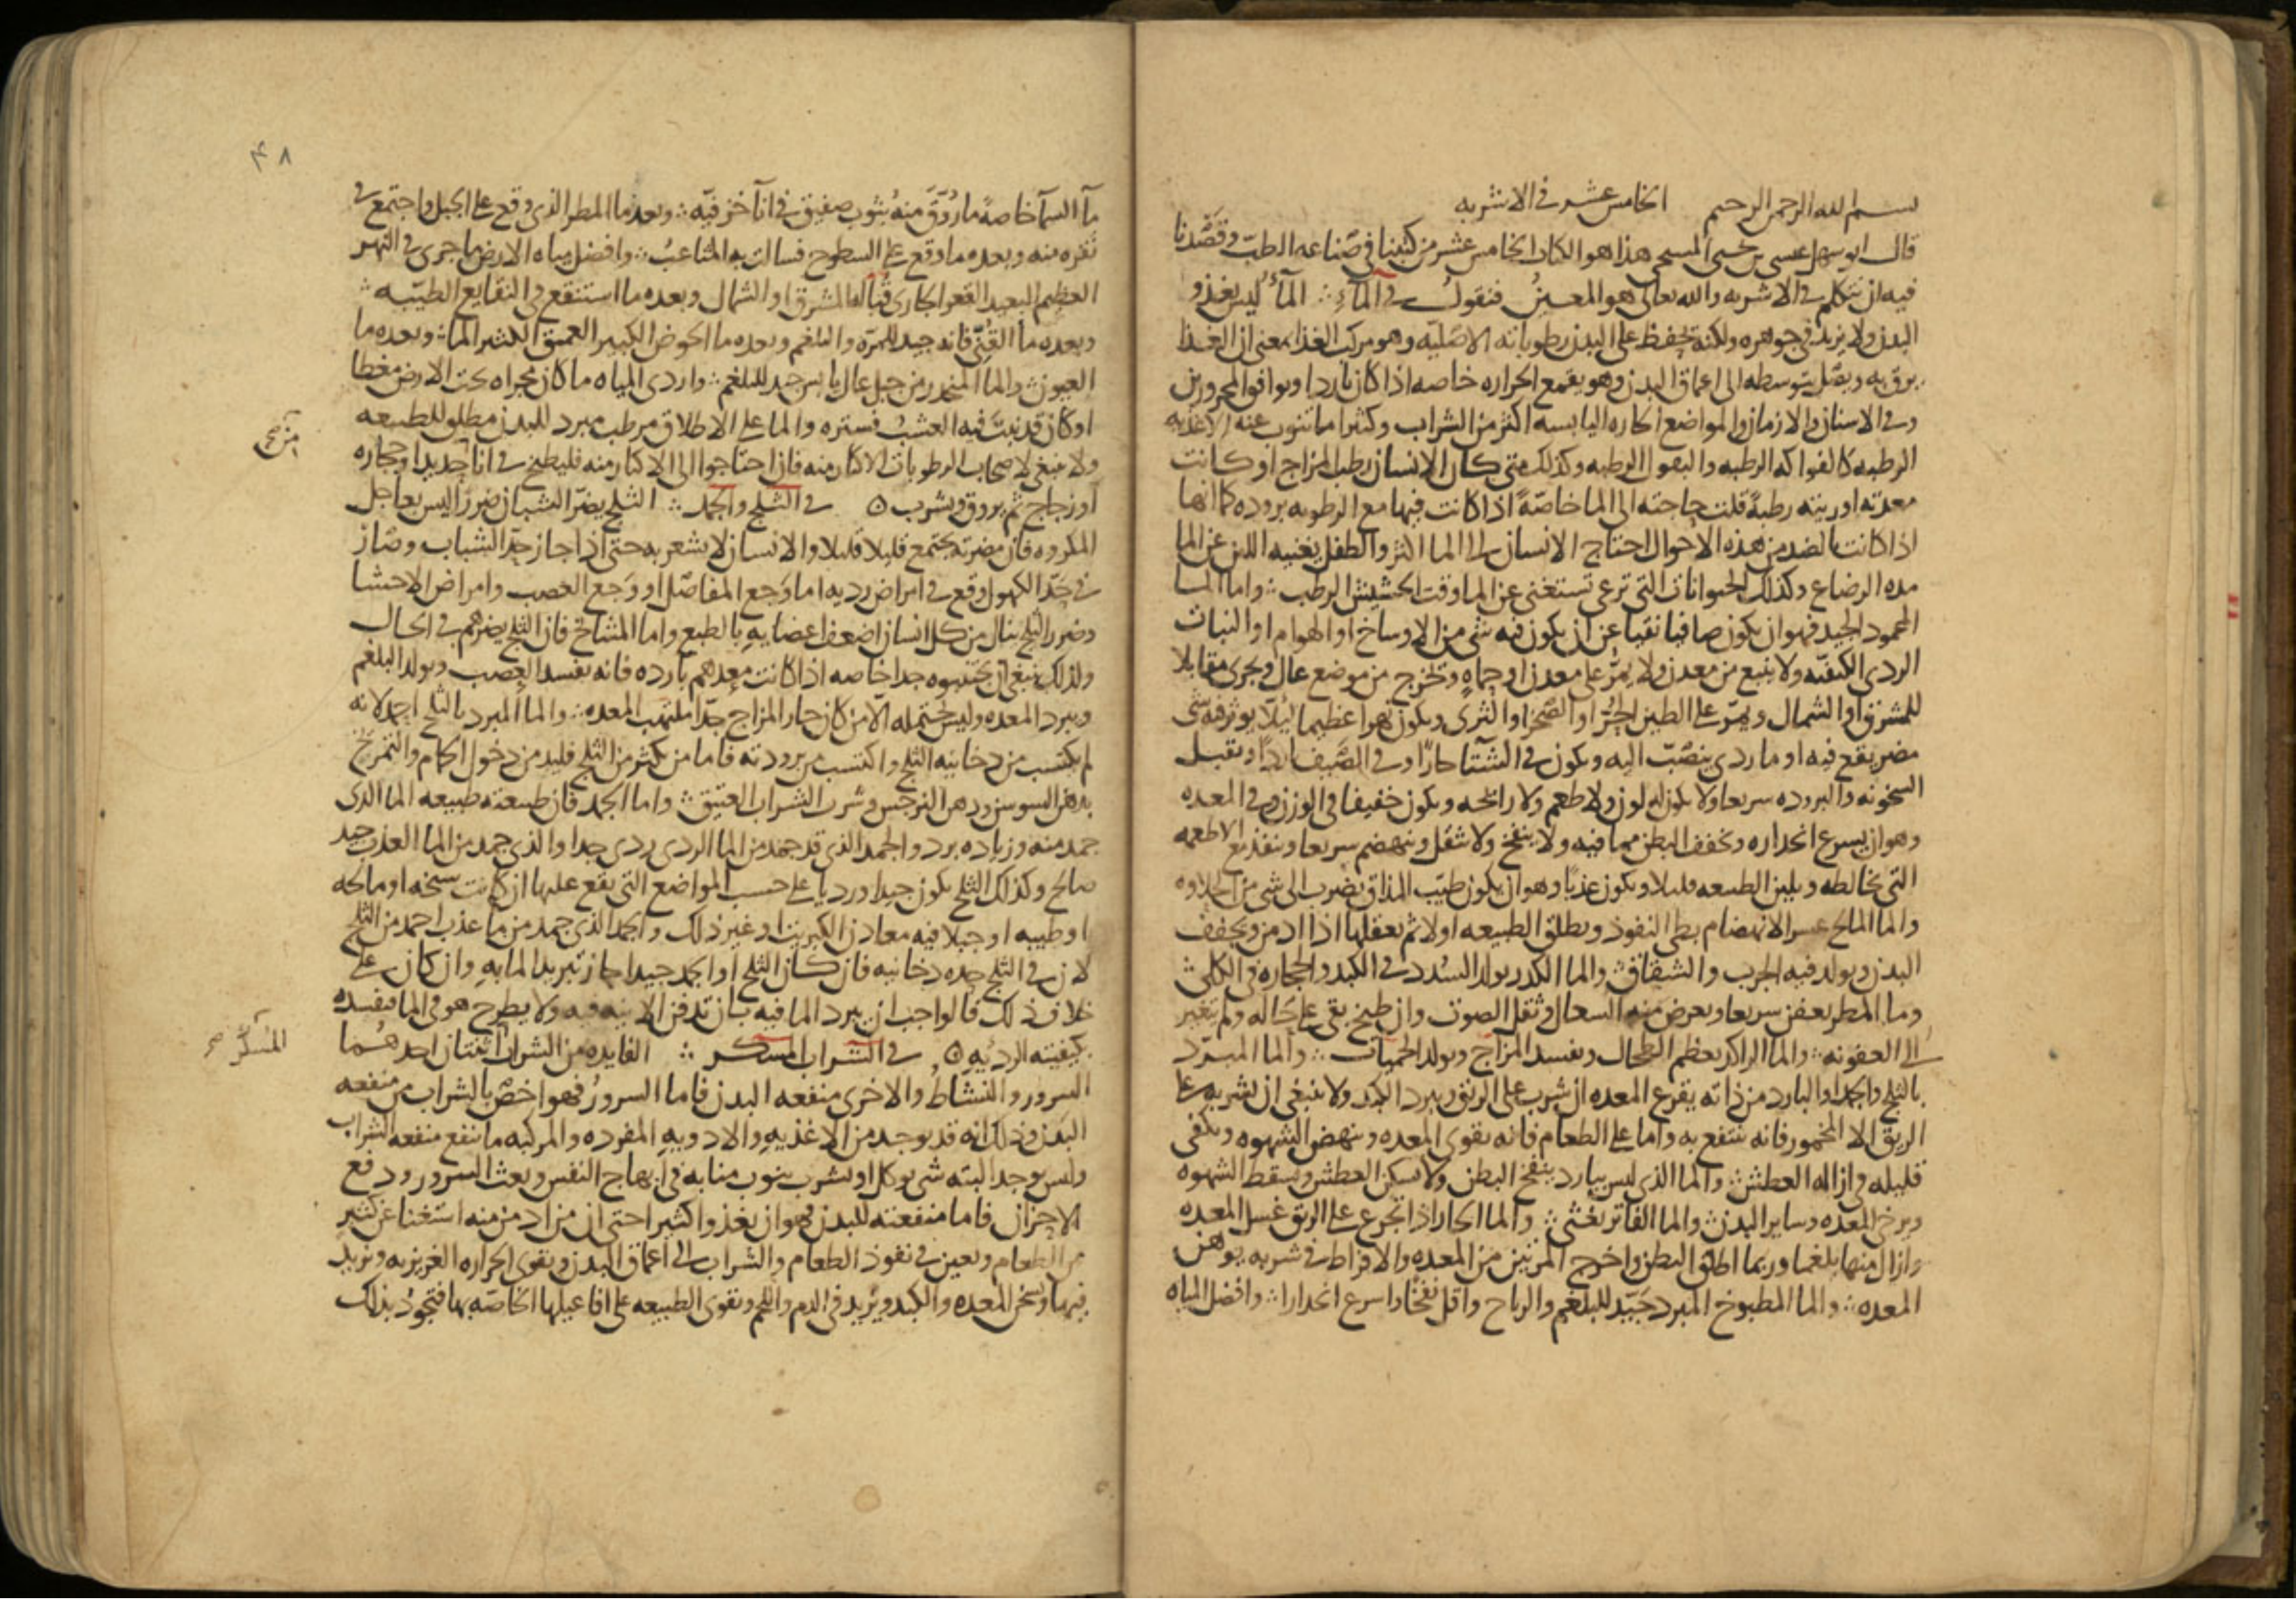 بسم الله الرحمن الرحيم الخامس عشر في الاشربه
قال ابو سهل عيسى بن يحيى المسيحي هذا هو الكتاب الخامس عشر من كتبنا في صناعه الطب وقصدنا
فيه ان نتكلم في الاشربه والله تعالى هو المعين فنقول في المآء المآء ليس يغذو
البدن ولا يزيد في جوهره ولكنه يحفظ على البدن رطوباته الاصليه وهو مركب الغذا بمعنى ان الغذا
يرق به ويصل بتوسطه الى اعماق البدن وهو يقمع الحراره خاصه اذا كان باردا ويوافق المحرورين
وفي الاسنان والازمان والمواضع الحاره اليابسه اكثر من الشراب وكثيرا ما تنوب عنه الاغذيه
الرطبه كالفواكه الرطبه والبقول الرطبه وكذلك متى كان الانسان رطب المزاج او كانت
معدته او ريته رطبة قلت حاجته الى الما خاصة اذا كانت فيها مع الرطوبه بروده كما انها
اذا كانت بالضد من هذه الاحوال احتاج الانسان الى الما اكثر والطفل يغنيه اللبن عن الما
مده الرضاع وكذلك الحيوانات التي ترعى تستغنى عن الما وقت الحشيش الرطب واما الما
المحمود الجيد فهو ان يكون صافيا نقيا عن ان يكون فيه شي من الاوساخ او الهوام او النبات
الردي الكيفيه ولا ينبع من معدن ولا يمر على معدن او حماه ويخرج من موضع عال ويجرى مقابلا
للمشرق او الشمال ويمر على الطين الحر او الصخر او الثرى ويكون نهرا عظيما ليلا يوثر فيه شي
مضر يقع فيه او ما ردي ينصب اليه ويكون في الشتا حارا وفي الصيف باردا ويقبل
السخونه والبروده سريعا ولا يكون له لون ولا طعم ولا رائحه ويكون خفيفا في الوزن وفي المعده
وهو ان يسرع انحداره ويخفف البطن مما فيه ولا ينفخ ولا يثقل وينهضم سريعا وينفذ مع الاطعمه
التي تخالطه ويلين الطبيعه قليلا ويكون عذبا وهو ان يكون طيب المذاق يضرب الى شي من الحلاوه
والما المالح عسر الانهضام بطى النفوذ ويطلق الطبيعه اولا ثم يعقلها اذا ادمن ويجفف
البدن ويولد فيه الجرب والشقاق والما الكدر يولد السدد في الكبد والحجاره في الكلى
وما المطر يعفن سريعا ويعرض منه السعال وثقل الصوت وان طبخ بقى على حاله ولم يتغير
الى العفونه والما الراكد يعظم الطحال ويفسد المزاج ويولد الحميات والما المبرد
بالثلج والجمد او البارد من ذاته يقرع المعده ان شرب على الريق ويبرد الكبد ولا ينبغى ان يشربه على
الريق الا المخمور فانه ينتفع به واما على الطعام فانه يقوى المعده وينهض الشهوه ويكفى
قليله في ازاله العطش والما الذي ليس ببارد ينفخ البطن ولا يسكن العطش ويسقط الشهوه
ويرخي المعده وساير البدن والما الفاتر يغثى والما الحار اذا تجرع على الريق غسل المعده
وازال منها بلغما وربما اطلق البطن واخرج المرتين من المعده والافراط في شربه يوهن
المعده والما المطبوخ المبرد جيد للبلغم والرياح واقل نفخا واسرع انحدارا وافضل المياه
٤٨
مآ السمآ خاصة ما روق منه بثوب صفيق في انآ خزفيه وبعده ما المطر الذي وقع على الجبل واجتمع في
نقره منه وبعده ما وقع على السطوح فسالت به المثاعب وافضل مياه الارض ما جرى في النهر
العظيم البعيد القعر الجارى قباله المشرق او الشمال وبعده ما استنقع في النقايع الطيبه
وبعده ما القنى فانه جيد للمره والبلغم وبعده ما الحوض الكبير العميق الكثير الما وبعده ما
العيون والما المنحدر من جبل عال يابس جيد للبلغم واردى المياه ما كان مجراه تحت الارض مغطا
او كان قد نبت فيه العشب فستره والما على الاطلاق مرطب مبرد للبدن مطلق للطبيعه
ولا ينبغى لاصحاب الرطوبات الاكثار منه فان احتاجوا الى الاكثار منه فليطبخ في انا حديد او حجاره
او زجاج ثم يروق ويشرب في الثلج والجمد الثلج يضر الشبان ضررا ليس بعاجل
المكروه فان مضرته تجتمع قليلا قليلا والانسان لا يشعر به حتى اذا جاز حد الشباب وصار
في حد الكهول وقع في امراض رديه اما وجع المفاصل او وجع العصب وامراض الاحشا
وضرر الثلج ينال من كل انسان اضعف اعضايه بالطبع واما المشايخ فان الثلج يضرهم في الحال
ولذلك ينبغى ان يجتنبوه جدا خاصه اذا كانت معدهم بارده فانه يفسد العصب ويولد البلغم
ويبرد المعده وليس يحتمله الا من كان حار المزاج جدا ملتهب المعده والما المبرد بالثلج احمد لانه
لم يكتسب من دخانيه الثلج واكتسب من برودته فاما من يكثر من الثلج فليدمن دخول الحمام والتمريخ
بدهن السوسن ودهن النرجس وشرب الشراب العتيق واما الجمد فان طبيعته طبيعه الما الذى
جمد منه وزياده برد والجمد الذي قد جمد من الما الردي ردي جدا والذي جمد من الما العذب جيد
صالح وكذلك الثلج يكون جيدا ورديا على حسب المواضع التي يقع عليها ان كانت سبخه او مالحه
او طيبه او جبلا فيه معادن الكبريت او غير ذلك والجمد الذي جمد من ما عذب احمد من الثلج
لان في الثلج حده دخانيه فان كان الثلج او الجمد جيدا جاز تبريد الما به وان كان على
خلاف ذلك فالواجب ان يبرد الما فيه بان تدفن الانيه فيه ولا يطرح هو في الما فيفسده
بكيفيته الرديه في الشراب المسكر الفايده من الشراب اثنتان احدهما
المسكر
السرور والنشاط والاخرى منفعه البدن فاما السرور فهو اخص بالشراب من منفعه
البدن وذلك انه قد يوجد من الاغذيه والادويه المفرده والمركبه ما ينفع منفعه الشراب
وليس يوجد البته شي يوكل او يشرب ينوب منابه في ابهاج النفس وبعث السرور ودفع
الاحزان فاما منفعته للبدن فهو ان يغذو كثيرا حتى ان من ادمن منه استغنا عن كثير
من الطعام ويعين في نفوذ الطعام والشراب الى اعماق البدن ويقوى الحراره الغريزيه ويزيد
فيها ويسخن المعده والكبد ويزيد في الدم واللحم ويقوى الطبيعه على افاعيلها الخاصه بها فتجود بذلك